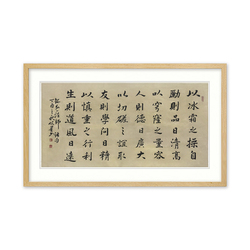 以冰霜之操自
勵則品日清高
以穹窿之量容
人則德日廣大
以切磋之誼取
友則學問日精
以慎重之行利
生則道風日遠